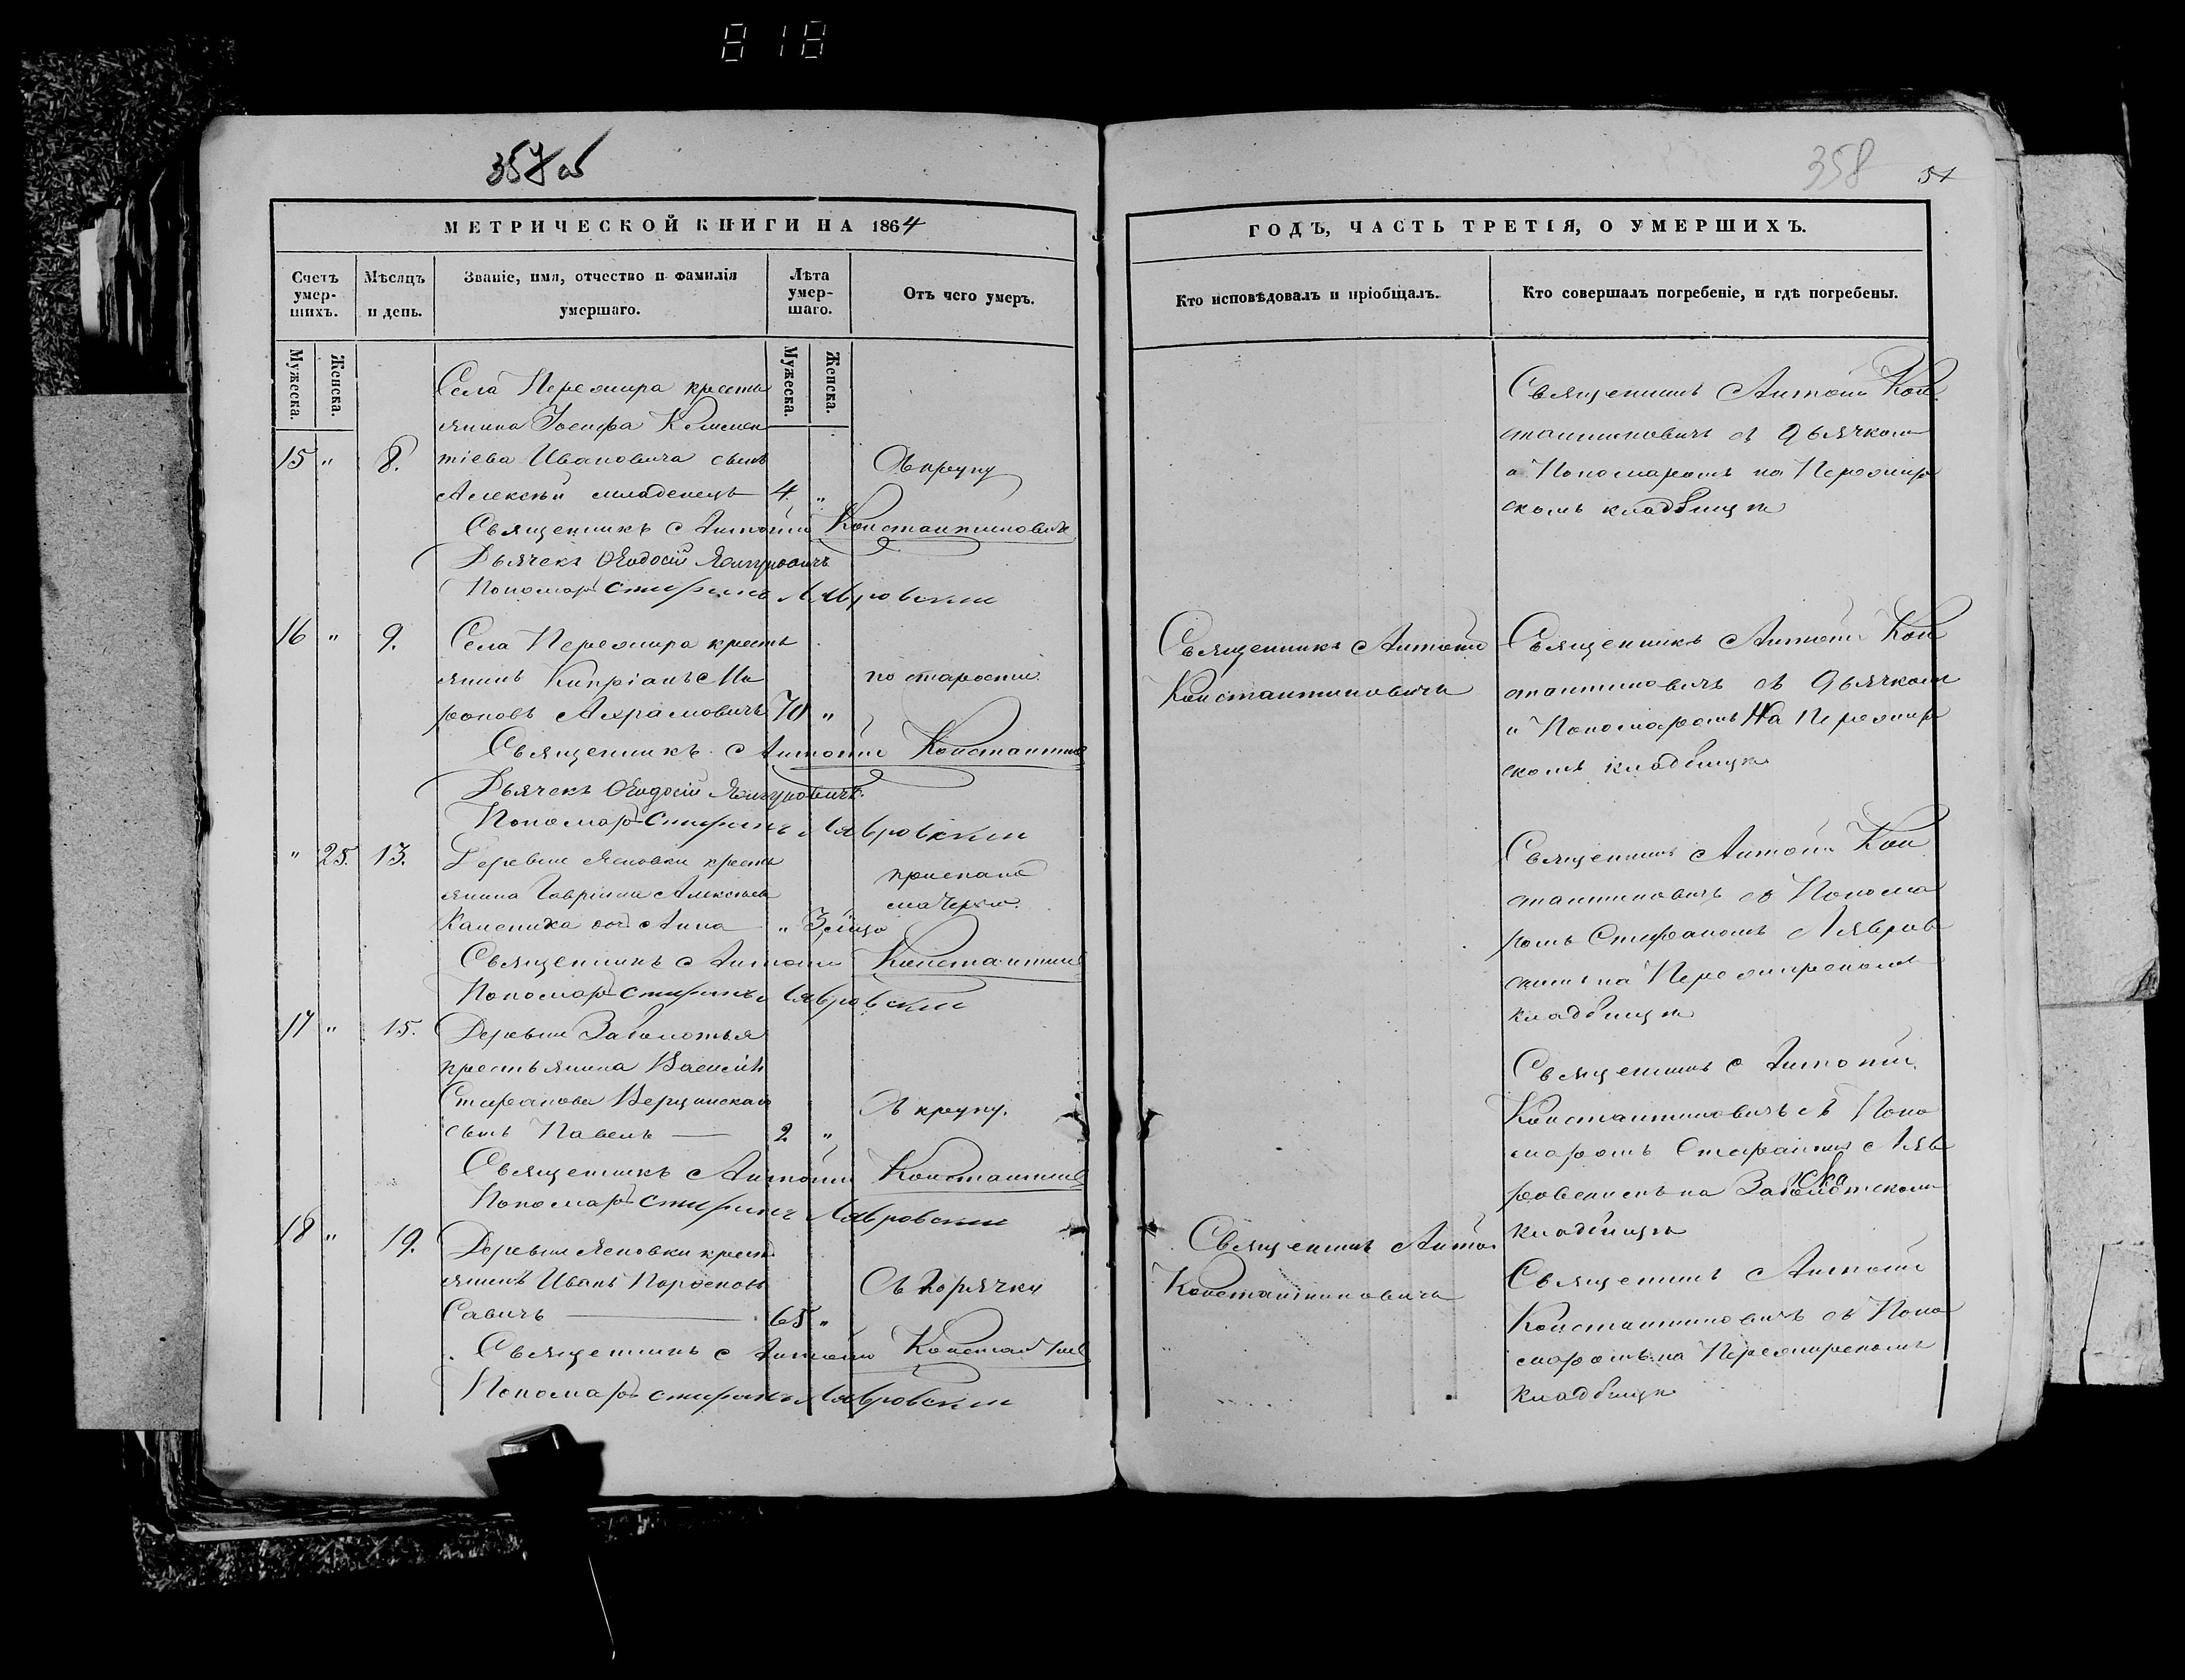 818
357 об
МЕТРИЧЕСКОЙ КНИГИ НА 1864
Счетъ умер-шихъ.
Мѣсяцъ и день.
Званіе, имя, отчество и фамилія умершаго.
Лѣта умер-шаго.
Отъ чего умеръ.
Мужеска.
Женска.
Мужеска.
Женска.
Села Перемира кресть
янина Іосифа Климен
15 " 8. тіева Ивановича сынъ Съ крупу
Алексѣй младенецъ 4. "
Священникъ Антоній Константиновичъ
Дьячекъ Ѳеодосій
Пономарь Стефанъ Лявровскій
16 " 9. Села Перемира кресть
янинъ Кипріанъ Ми по старости
роновъ Ахрамовичъ 70 "
Священникъ Антоній Константин
Дьячекъ Ѳеодосій
Пономарь Стефанъ Лявровскій
" 25. 13. Деревни Ясновки кресть
янина Гавріила Алексѣева приспана
Каленика дочь Анна " 3 мѣсяц матерью.
Священникъ Антоній Константин
Пономарь Стефанъ Лявровскій
17 " 15. Деревни Заболотья
крестьянина Василія
Стефанова Верцинскаго Съ крупу.
сынъ Павелъ 2. "
Священникъ Антоній Константин
Пономарь Стефанъ Лявровскій
18 " 19. Деревни Ясновки кресть
янинъ Иванъ Съ горячки
Савичъ 65 "
Священникъ Антоній Константин
Пономарь Стефанъ Лявровскій
358
51
ГОДЪ, ЧАСТЬ ТРЕТІЯ, О УМЕРШИХЪ.
Кто исповѣдовалъ и пріобщалъ.
Кто совершалъ погребеніе, и гдѣ погребены.
Священникъ Антоній Кон
стантиновичъ съ дьячкомъ
и Пономаремъ на Перемир
скомъ кладбищѣ
Священникъ Антоній
Константиновичъ
Священникъ Антоній Кон
стантиновичъ съ дьячкомъ
и Пономаремъ На Перемир
скомъ кладбищѣ
Священникъ Антоній Кон
стантиновичъ съ Понома
ремъ Стефаномъ Лявров
скимъ на Перемирскомъ
кладбищѣ
Священникъ Антоній
Константиновичъ съ Поно
маремъ Стефаномъ Ляв
ровскимъ на Заболотскомъ
кладбищѣ
Священникъ Антоній
Константиновичъ
Священникъ Антоній
Константиновичъ съ Поно
маремъ на Перемирскомъ
кладбищѣ